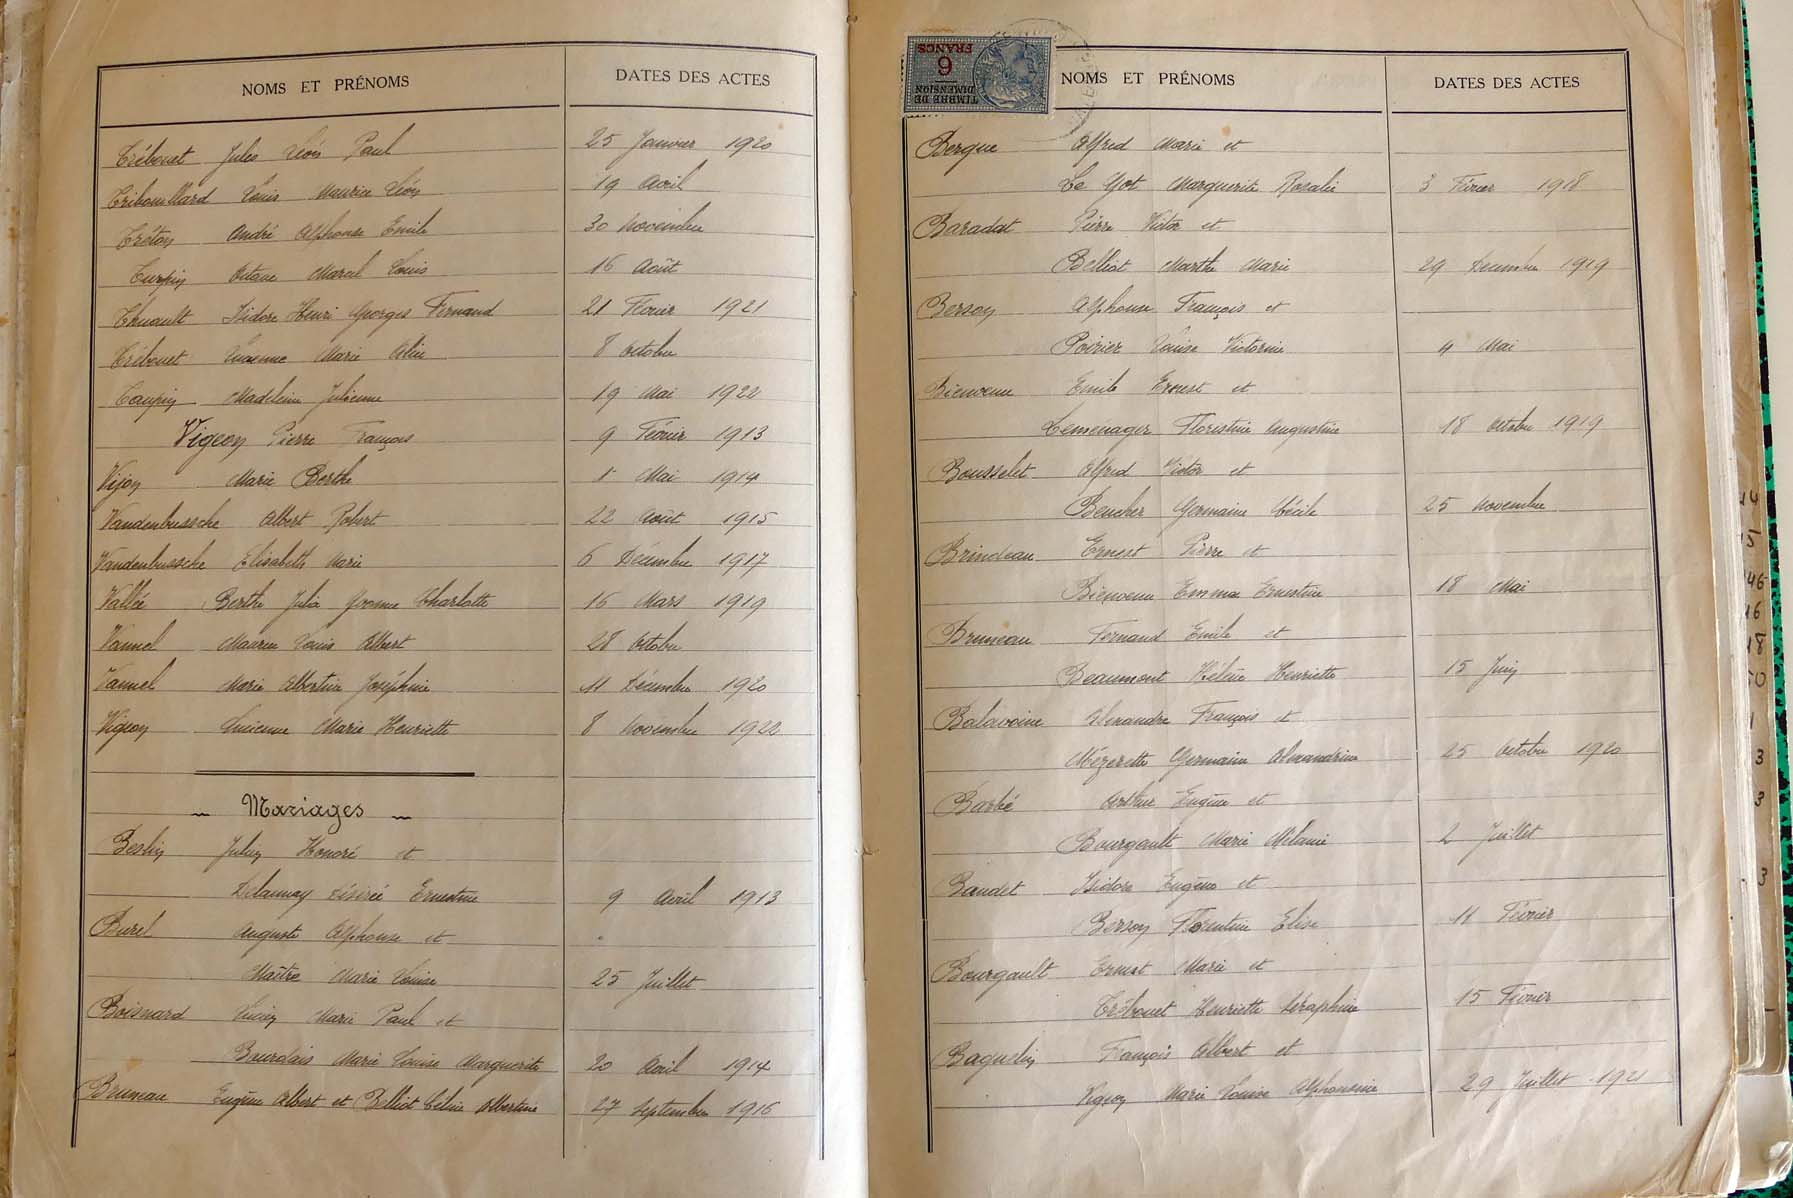 NOMS ET PRÉNOMS DATES DES ACTES
Trébouet Jules Léon Paul 25 Janvier 1920
Tribouillard Louis Maurice Léon 19 Avril
Créton André Alphonse Emile 30 Novembre
Turpin Octave Marcel Louis 16 Août
Thuault Isidore Henri Georges Fernand 21 Février 1921
Trébouet Lucienne Marie 8 Octobre
Taupin Madeleine Julienne 19 Mai 1922
Vigeon Pierre François 9 Février 1913
Vijon Marie Berthe 1 Mai 1914
Vandenbussche Albert Robert 22 Août 1915
Vandenbussche Elisabeth Marie 6 Décembre 1917
Vallée Berthe Julia Yvonne Charlotte 16 Mars 1919
Vannel Maurice Louis Albert 28 Octobre
Vannel Marie Albertine Joséphine 11 Décembre 1920
Vigeon Lucienne Marie Henriette 8 Novembre 1922
Mariages
Beslin Julien Honoré et
Delaunay Désirée Ernestine 9 Avril 1913
Burel Auguste Alphonse et
Maître Marie Louise 25 Juillet
Boisnard Lucien Marie Paul et
Bourdais Marie Louise Marguerite 20 Avril 1914
Bruneau Eugène Albert et Belliot Céline Albertine 27 Septembre 1916
TIMBRE DE DIMENSION
6
FRANCS
NOMS ET PRÉNOMS DATES DES ACTES
Bergue Alfred Marie et
Le Yot Marguerite Rosalie 3 Février 1918
Baradat Pierre Victor et
Belliot Marthe Marie 29 Decembre 1919
Berson Alphonse François et
Poirier Louise Victorine 4 Mai
Bienvenu Emile Ernest et
Lemenager Florestine Augustine 18 Octobre 1919
Bousselet Alfred Victor et
Beucher Germaine Cécile 25 Novembre
Brindeau Ernest Pierre et
Bienvenu Emma Ernestine 18 Mai
Bruneau Fernand Emile et
Beaumont Hélène Henriette 15 Juin
Balavoine Alexandre François et
Mézerette Germaine Alexandrine 25 Octobre 1920
Barbé Arthur Eugène et
Bourgault Marie Mélanie 2 Juillet
Baudet Isidore Eugène et
Berson Florentine Elise 11 Février
Bourgault Ernest Marie et
Trébouet Henriette Séraphine 15 Février
Baguelin François Albert et
Vigeon Marie Louise Alphonsine 29 Juillet 1921